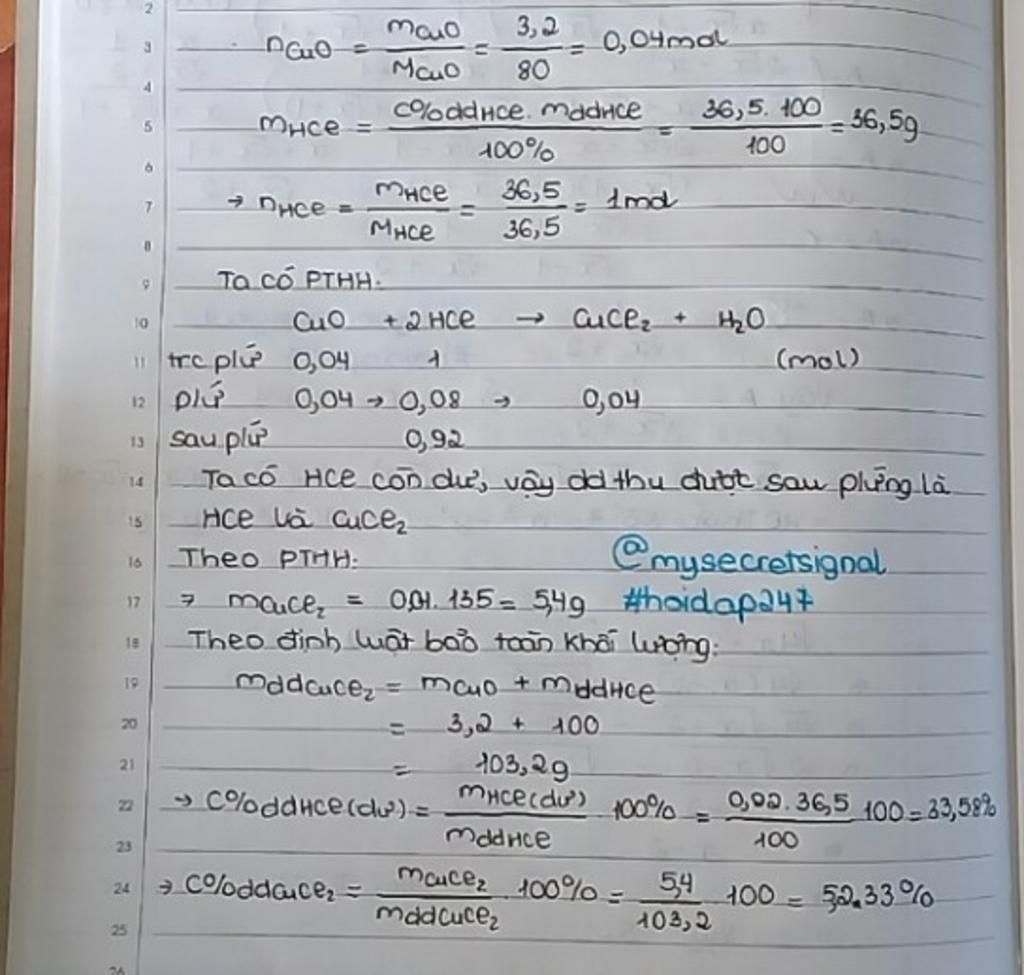 2
3 nCuO = mCuO / MCuO = 3,2 / 80 = 0,04mol
4
5 mHCl = C%ddHCl. mddHCl / 100% = 36,5. 100 / 100 = 36,5g
6
7 → nHCl = mHCl / MHCl = 36,5 / 36,5 = 1mol
8
9 Ta có PTHH:
10 CuO + 2HCl → CuCl₂ + H₂O
11 trc pứ 0,04 1 (mol)
12 pứ 0,04 → 0,08 → 0,04
13 sau pứ 0,92
14 Ta có HCl còn dư, vậy dd thu được sau pứng là
15 HCl và CuCl₂
16 Theo PTHH: @mysecretsignal
17 → mCuCl₂ = 0,04. 135 = 5,4g #hoidap247
18 Theo định luật bảo toàn khối lượng:
19 mddCuCl₂ = mCuO + mddHCl
20 = 3,2 + 100
21 = 103,2g
22 → C%ddHCl(dư) = mHCl(dư) / mddHCl 100% = 0,92. 36,5 / 100 100 = 33,58%
23
24 → C%ddCuCl₂ = mCuCl₂ / mddCuCl₂ .100% = 5,4 / 103,2 100 = 5,2.33%
25
26